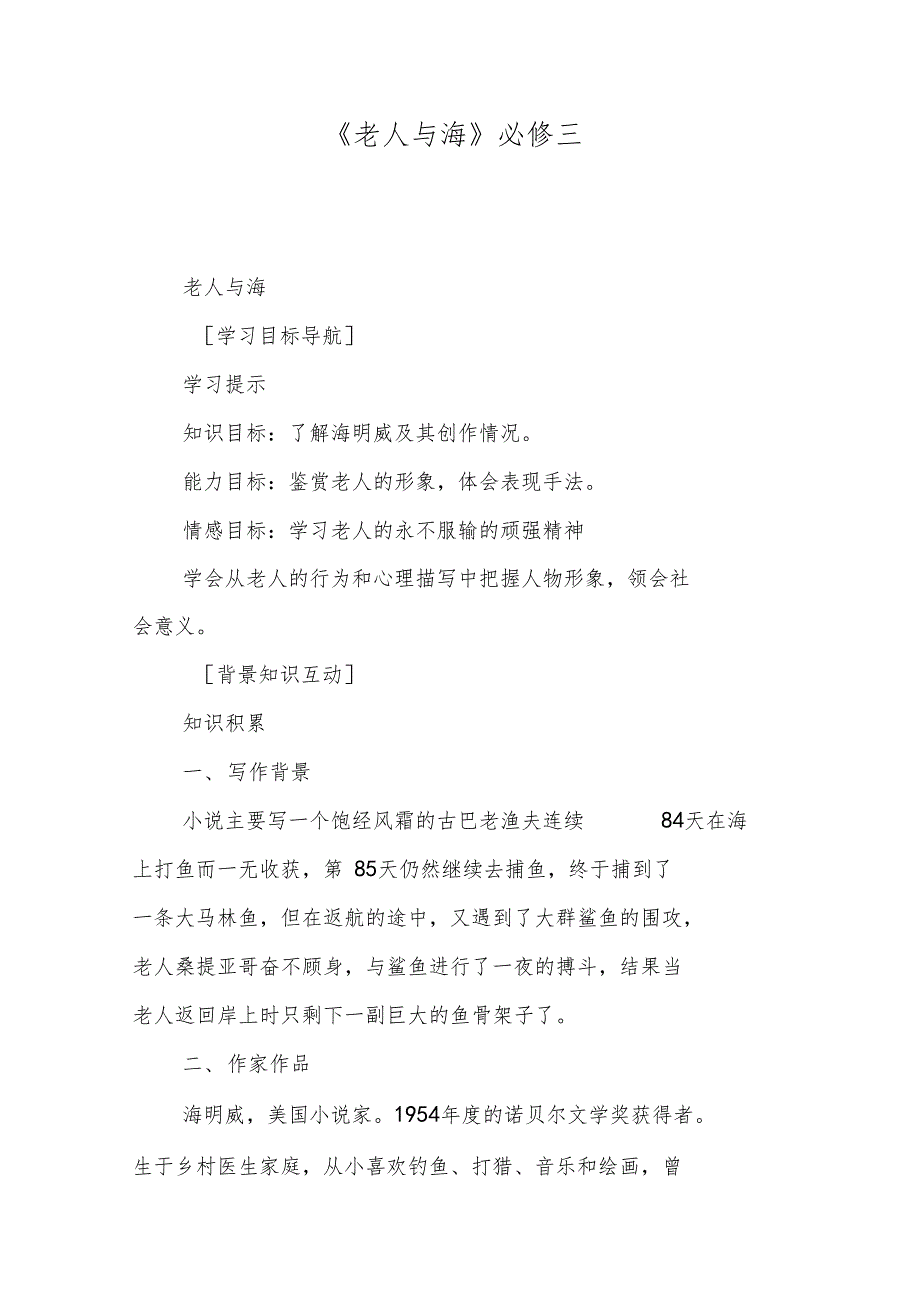 《老人与海》必修三
老人与海
［学习目标导航］
学习提示
知识目标：了解海明威及其创作情况。
能力目标：鉴赏老人的形象，体会表现手法。
情感目标：学习老人的永不服输的顽强精神
学会从老人的行为和心理描写中把握人物形象，领会社
会意义。
［背景知识互动］
知识积累
一、 写作背景
小说主要写一个饱经风霜的古巴老渔夫连续 84天在海
上打鱼而一无收获，第 85天仍然继续去捕鱼，终于捕到了
一条大马林鱼，但在返航的途中，又遇到了大群鲨鱼的围攻，
老人桑提亚哥奋不顾身，与鲨鱼进行了一夜的搏斗，结果当
老人返回岸上时只剩下一副巨大的鱼骨架子了。
二、 作家作品
海明威，美国小说家。1954年度的诺贝尔文学奖获得者。
生于乡村医生家庭，从小喜欢钓鱼、打猎、音乐和绘画，曾